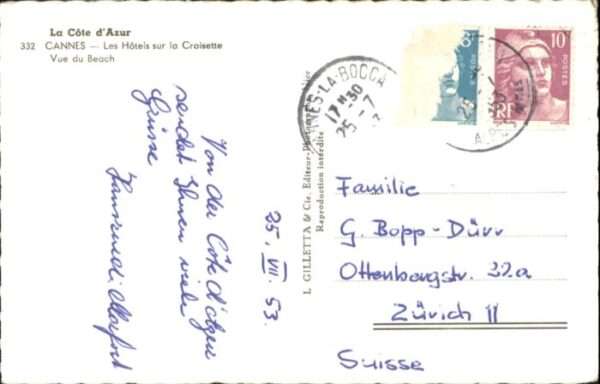 La Côte d'Azur
332 CANNES — Les Hôtels sur la Croisette
Vue du Beach
Von der Côte d'Azur
sendet Ihnen viele
Grüsse
25. VII. 53.
L. GILLETTA & Cie, Editeur
Reproduction interdite
NES-LA-BOCCA
17 H 30
25-7
10F
POSTES
RF
Familie
G. Bopp-Dürr
Ottenbergstr. 22a
Zürich 11
Suisse